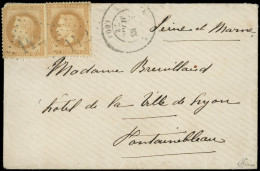 Seine et Marne
Madame Breuillaud
hôtel de la Ville de Lyon
Fontainebleau